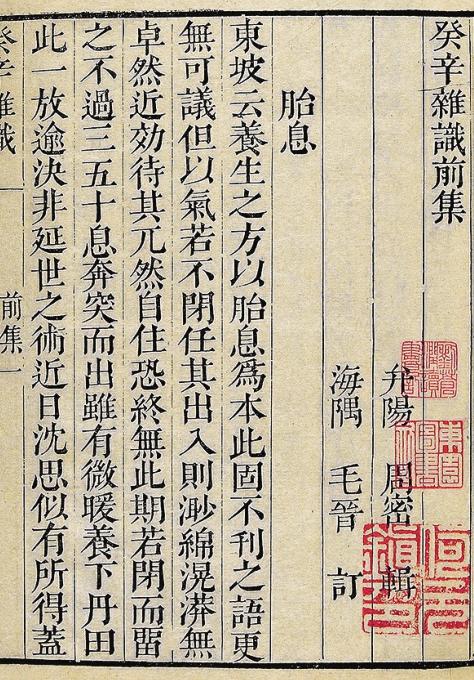 癸辛雜識前集
弁陽 周密 輯
海隅 毛晉 訂
胎息
東坡云養生之方以胎息爲本此固不刊之語更
無可議但以氣若不閉任其出入則渺綿滉漭無
卓然近効待其兀然自住恐終無此期若閉而留
之不過三五十息奔突而出雖有微暖養下丹田
此一放逾決非延世之術近日沈思似有所得蓋
癸辛雜識
前集
一